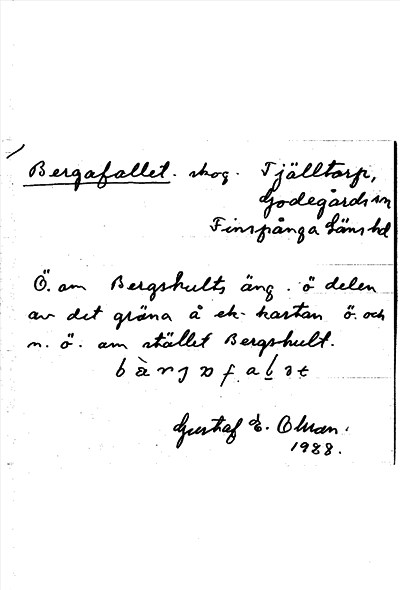 Bergafallet. skog. Tjälltorp,
Godegårds sn
Finspånga Läns hd
Ö. om Bergshults äng. ö delen
av det gröna å ek. kartan ö. och
n. ö. om stället Bergshult.
Gustaf E. Olman.
1988.